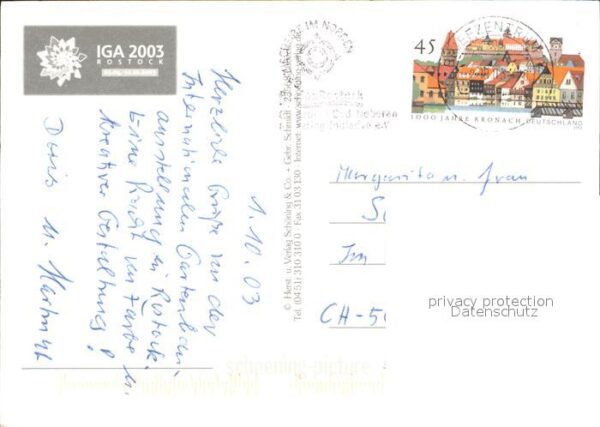 IGA 2003
ROSTOCK
1.10.03
Herzliche Grüße von der
Internationalen Gartenbau-
ausstellung in Rostock.
Eine Pracht von Farbe u.
kreativer Gestaltung!
Doris u.
© Herst. u. Verlag Schöning & Co. + Gebr. Schmidt
Tel. (0451) 310 310 0 · Fax 31 03 130 · Internet: www.
IM NORDEN
BRIEFZENTRUM
45
1000 JAHRE KRONACH DEUTSCHLAND
Margarita u. Fran
Im
CH-50
privacy protection
Datenschutz
schoening-picture